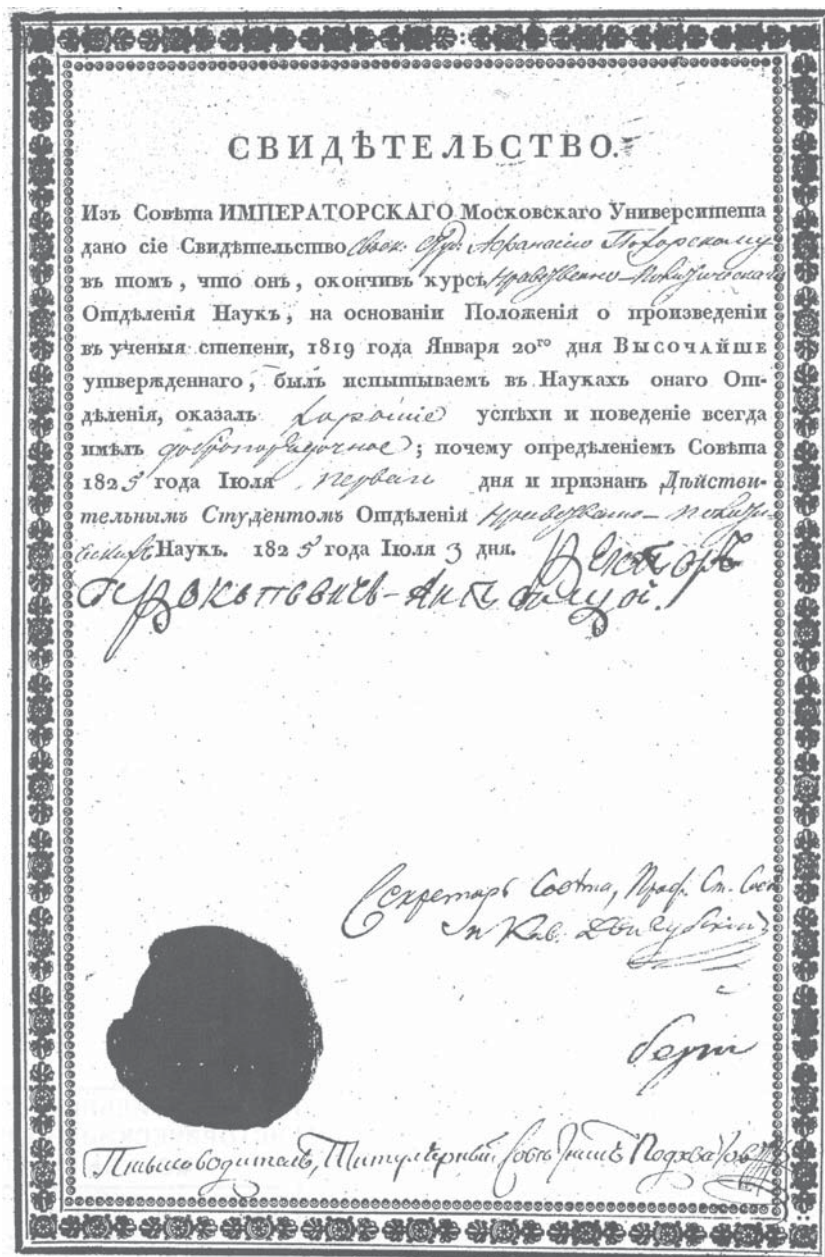 СВИДѢТЕЛЬСТВО.
Изъ Совѣта ИМПЕРАТОРСКАГО Московскаго Университета
дано сіе Свидѣтельство Своек. Студ. Афанасію Покорскому
въ томъ, что онъ, окончивъ курсъ Нравственно-Политическаго
Отдѣленія Наукъ, на основаніи Положенія о произведеніи
въ ученыя степени, 1819 года Января 20го дня ВЫСОЧАЙШЕ
утвержденнаго, былъ испытываемъ въ Наукахъ онаго От-
дѣленія, оказалъ хорошіе успѣхи и поведеніе всегда
имѣлъ добропорядочное; почему опредѣленіемъ Совѣта
1825 года Іюля перваго дня и признанъ Дѣйстви-
тельнымъ Студентомъ Отдѣленія Нравственно-Полити-
ческихъ Наукъ. 1825 года Іюля 3 дня. Ректоръ
Прокоповичь-Антонской.
Секретарь Совѣта, Проф. Ст. Сов.
и Кав. Двигубскій
Письмоводитель, Титулярный Совѣтникъ Подхватов